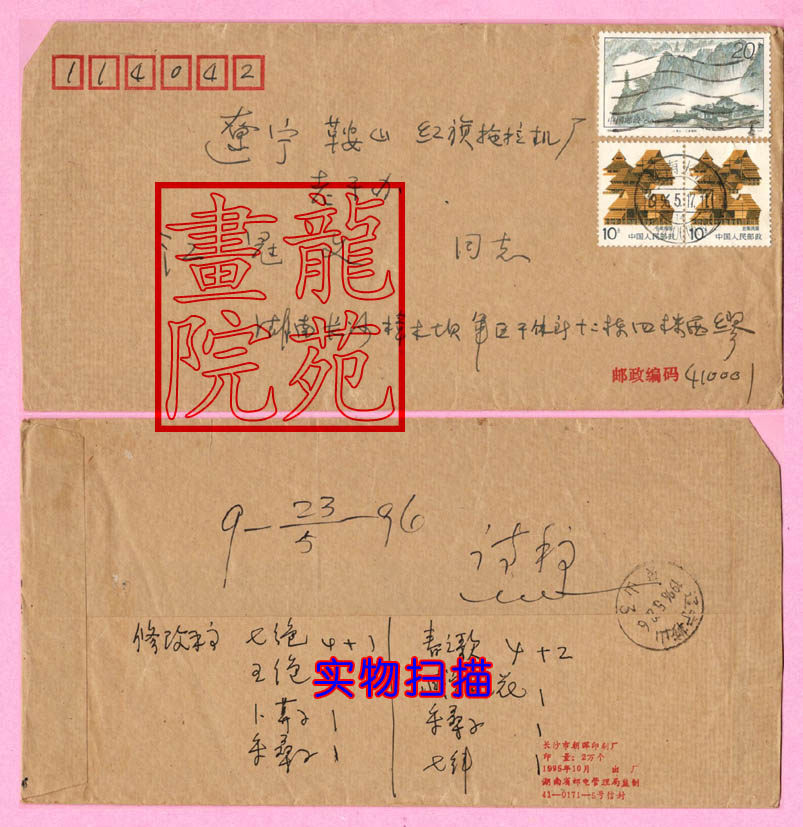 114042
20分
中国邮政
辽宁 鞍山 红旗拖拉机厂
10分 中国人民邮政
10分 中国人民邮政
同志
龍苑
畫院
湖南长沙樟木坝军区干休所十二栋四楼西缪
邮政编码 410001
9—23/5—96
诗稿
修改稿 七绝 4+1
春之歌 4+2
实物扫描
1
卜算子 1
采桑子 1
采桑子 1
七律 1
长沙市朝晖印刷厂
印量:2万个
1995年10月 出厂
湖南省邮电管理局监制
41—0171—5号信封